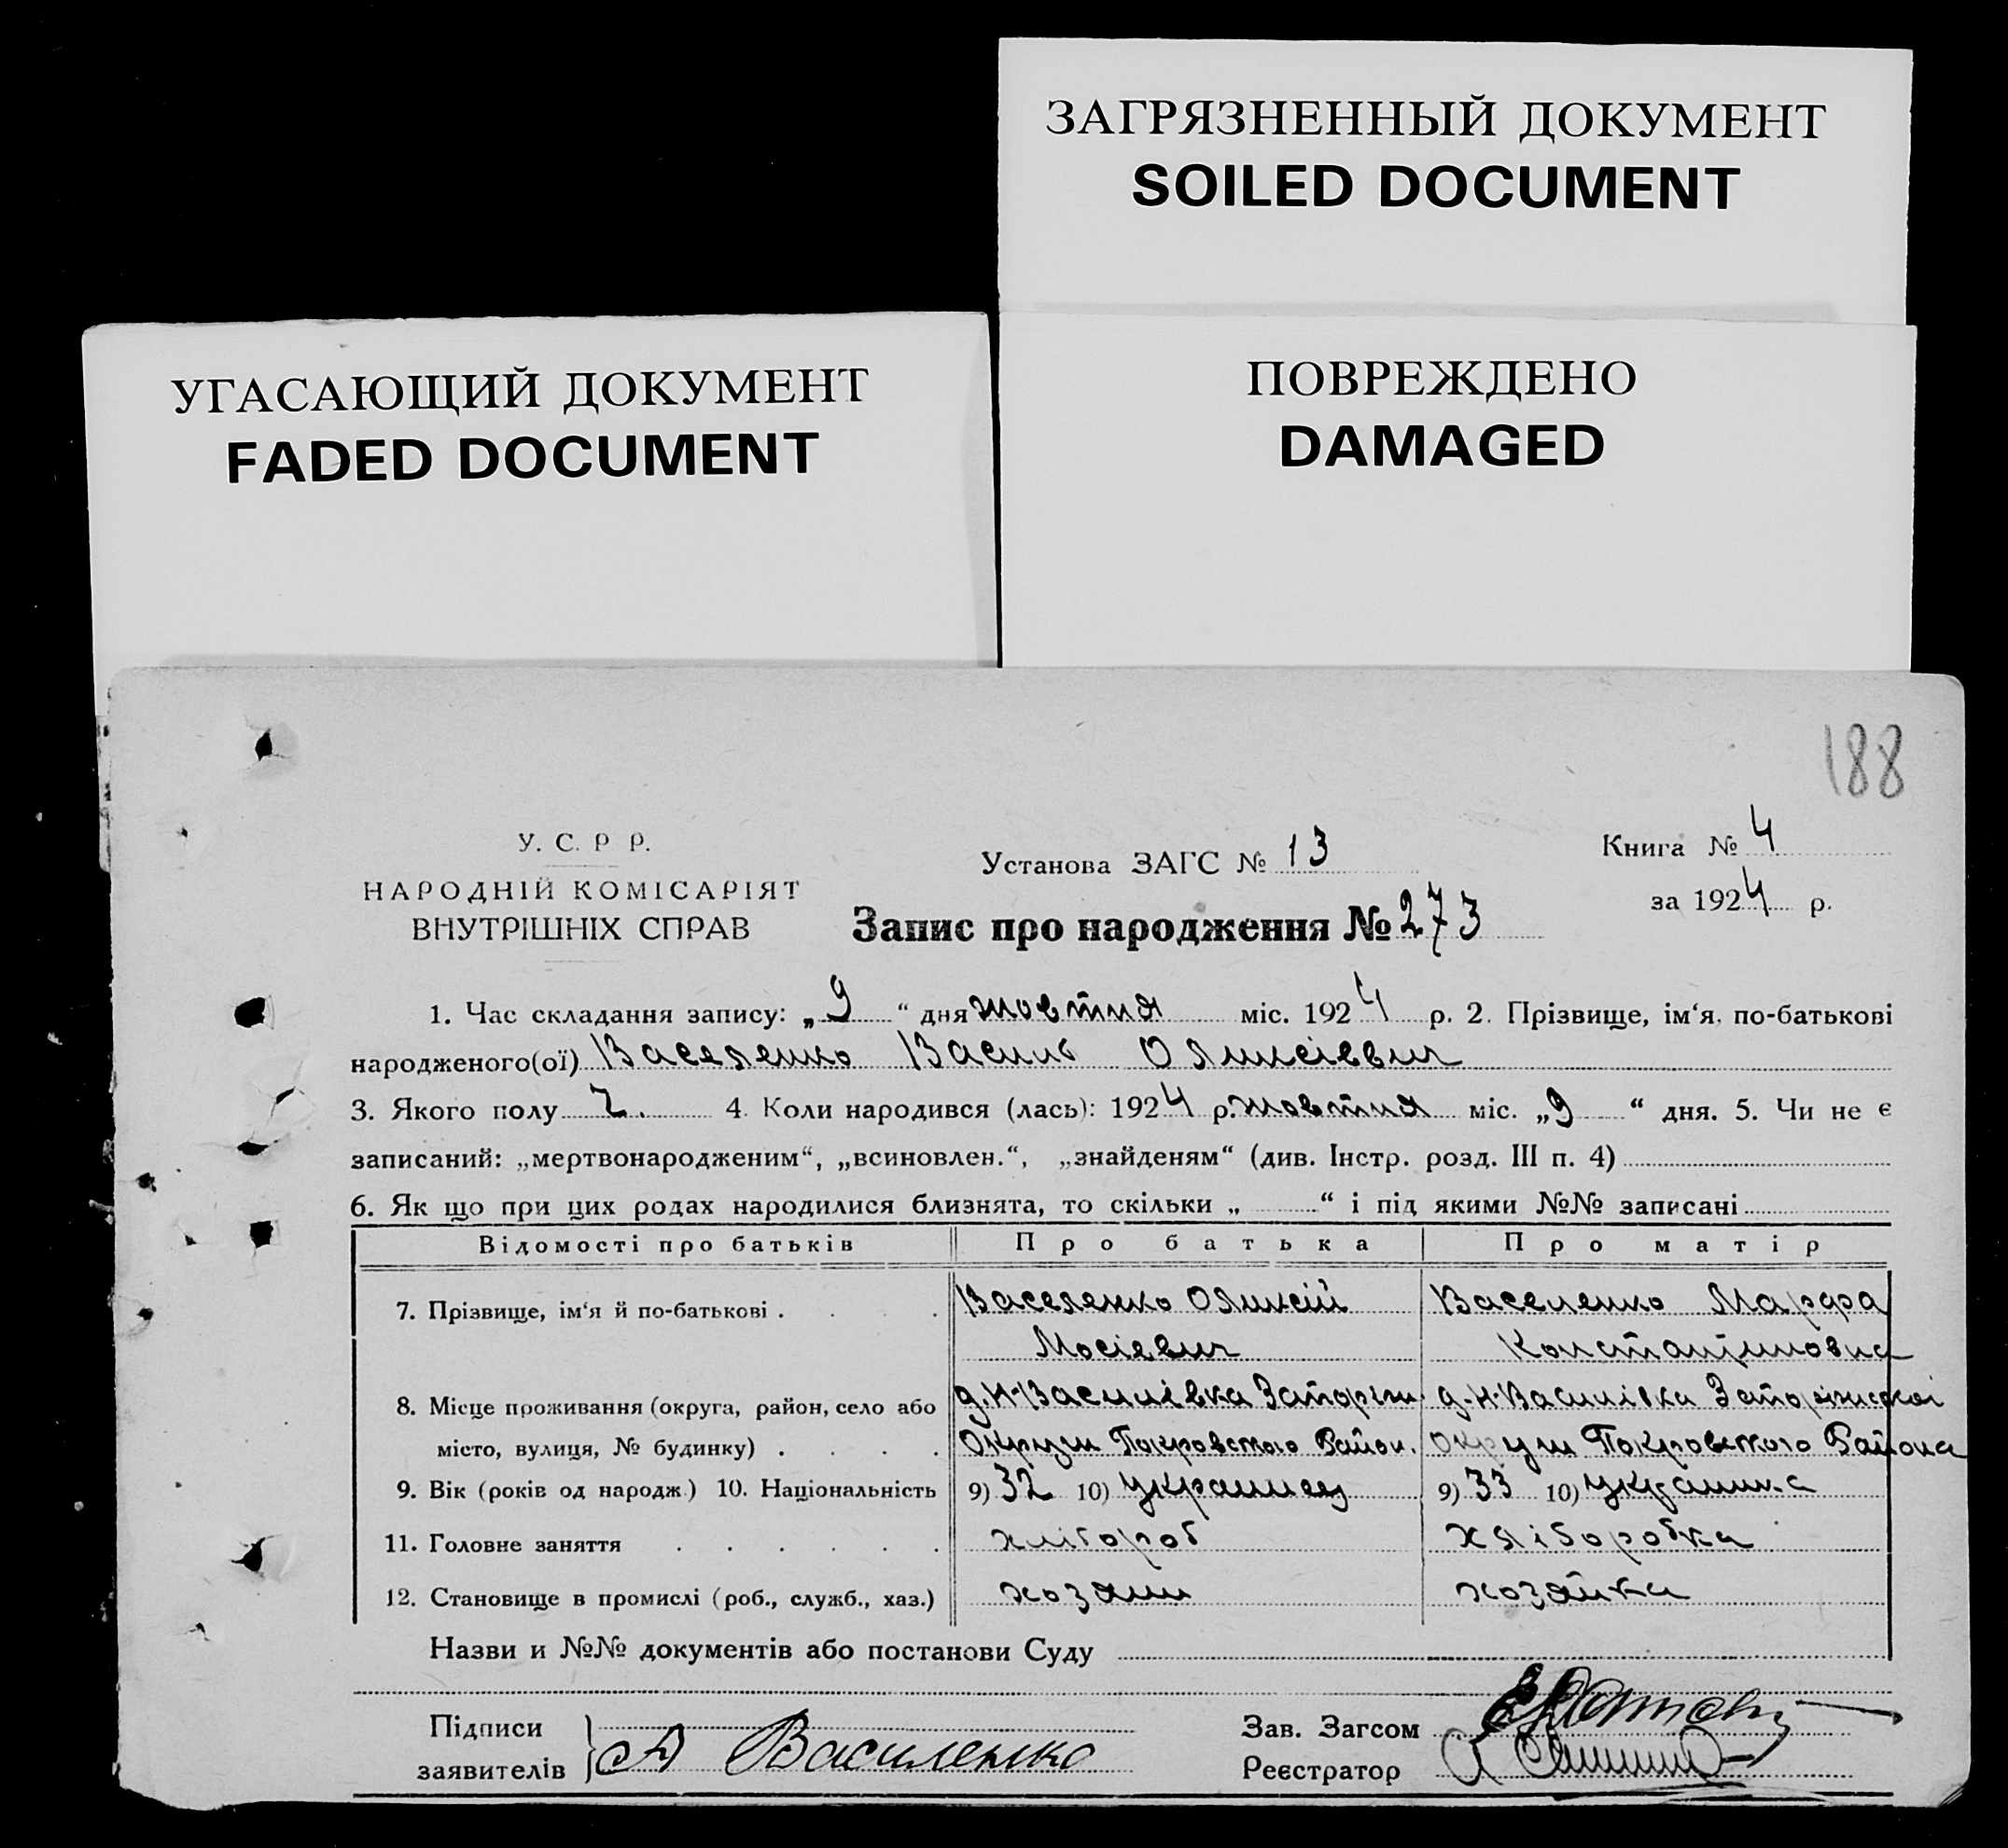 ЗАГРЯЗНЕННЫЙ ДОКУМЕНТ
SOILED DOCUMENT
УГАСАЮЩИЙ ДОКУМЕНТ
FADED DOCUMENT
ПОВРЕЖДЕНО
DAMAGED
188
У. С. Р. Р.
НАРОДНІЙ КОМІСАРІЯТ
ВНУТРІШНІХ СПРАВ
Установа ЗАГС № 13
Книга № 4
за 1924 р.
Запис про народження № 273
1. Час складання запису: „9“ дня жовтня міс. 1924 р. 2. Прізвище, ім‘я, по-батькові
народженого(ої) Васеленко Василь Олексіевич
3. Якого полу ч. 4. Коли народився (лась): 1924 р. жовтня міс. „9“ дня. 5. Чи не є
записаний: „мертвонародженим“, „всиновлен.“, „знайденям“ (див. Інстр. розд. III п. 4)
6. Як що при цих родах народилися близнята, то скільки „ “ і під якими №№ записані
Відомості про батьків Про батька Про матір
7. Прізвище, ім‘я й по-батькові . . . Васеленко Олексій Васеленко Марфа
Мосіевич Константиновна
8. Місце проживання (округа, район, село або д. Н-Василівка Запоріж. д. Н-Василівка Запоріжскої
місто, вулиця, № будинку) . . . . Округи Покровского Район. округи Покровского Района
9. Вік (років од народж.) 10. Національність 9) 32 10) украинец 9) 33 10) украинка
11. Головне заняття . . . . . . хлібороб хліборобка
12. Становище в промислі (роб., служб., хаз.) хозяин хозяйка
Назви и №№ документів або постанови Суду
Підписи
заявителів А Василенко
Зав. Загсом
Реєстратор